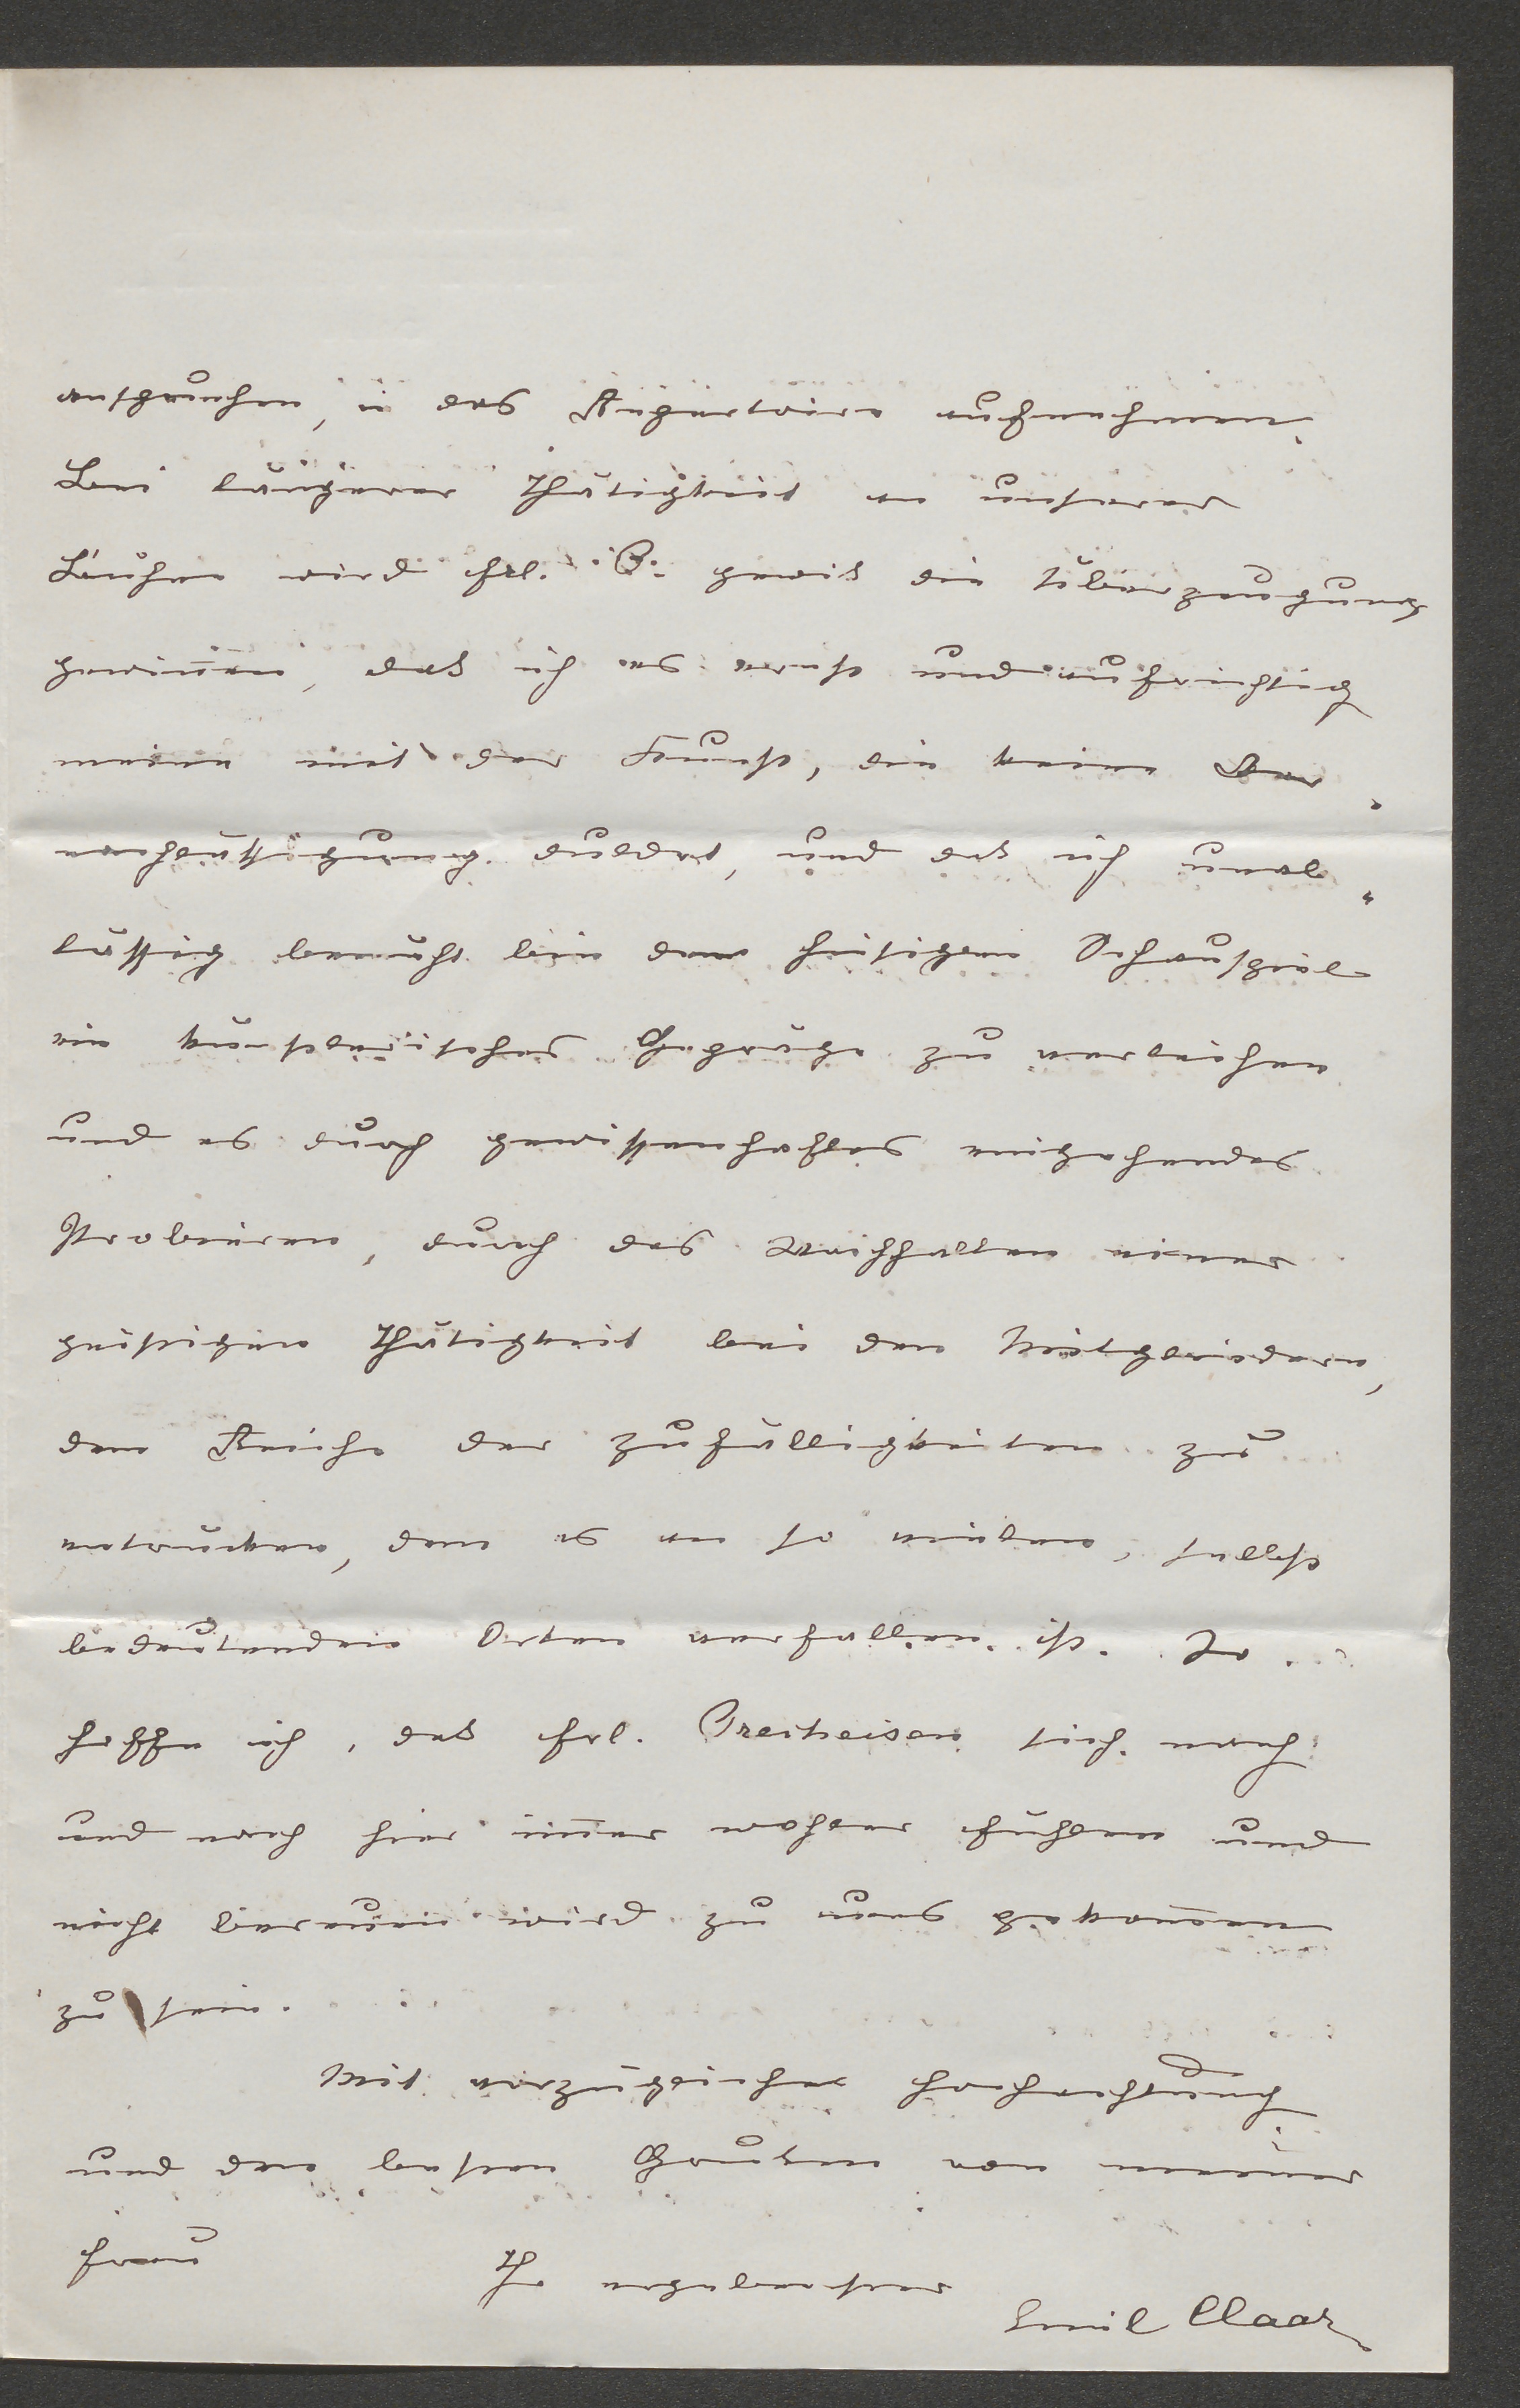 entsprechen, in das Repertoire aufnehmen.
Bei längerer Thätigkeit an unserer
Bühne wird Frl. B. gewiß die Überzeugung
gewinnen, daß ich es ernst und aufrichtig
meine mit der Kunst, die keine Ver-
nachlässigung duldet, und daß ich unab-
lässig bemüht bin dem hiesigen Schauspiel
ein künstlerisches Gepräge zu verleihen
und es durch gewissenhaftes eingehendes
Probieren, durch das Wachhalten einer
geistigen Thätigkeit bei den Mitgliedern,
dem Reiche der Zufälligkeiten zu
entrücken, dem es an so vielen, selbst
bedeutenden Orten verfallen ist. So
hoffe ich, daß Frl. Breitheisen sich nach
und nach hier immer wohler fühlen und
nicht bereuen wird zu uns gekommen
zu sein.
Mit vorzüglicher Hochachtung
und den besten Grüßen von meiner
Frau
Ihr ergebenster
Emil Claar